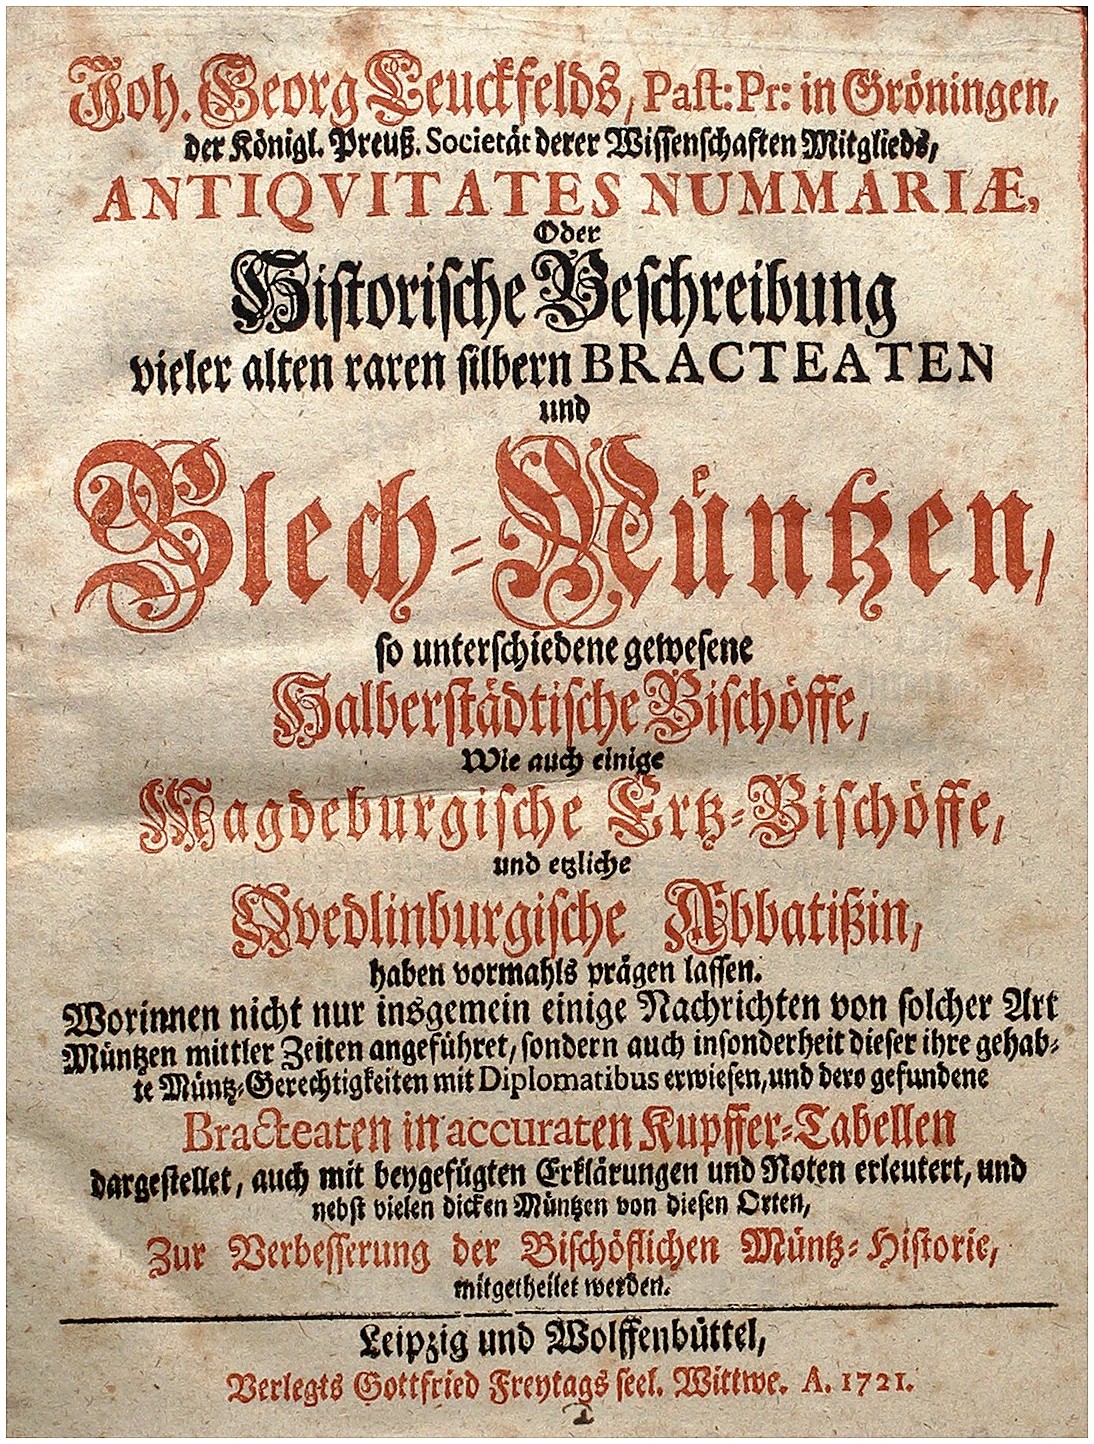 Joh. Georg Leuckfelds, Past: Pr: in Gröningen,
der Königl. Preuß. Societät derer Wissenschaften Mitglieds,
ANTIQVITATES NUMMARIÆ,
Oder
Historische Beschreibung
vieler alten raren silbern BRACTEATEN
und
Blech-Müntzen,
so unterschiedene gewesene
Halberstädtische Bischöffe,
Wie auch einige
Magdeburgische Ertz-Bischöffe,
und etzliche
Qvedlinburgische Abbatißin,
haben vormahls prägen lassen.
Worinnen nicht nur insgemein einige Nachrichten von solcher Art
Müntzen mittler Zeiten angeführet, sondern auch insonderheit dieser ihre gehab-
te Müntz-Gerechtigkeiten mit Diplomatibus erwiesen, und dero gefundene
Bracteaten in accuraten Kupffer-Tabellen
dargestellet, auch mit beygefügten Erklärungen und Noten erleutert, und
nebst vielen dicken Müntzen von diesen Orten,
Zur Verbesserung der Bischöflichen Müntz-Historie,
mitgetheilet werden.
Leipzig und Wolffenbüttel,
Verlegts Gottfried Freytags seel. Wittwe. A. 1721.